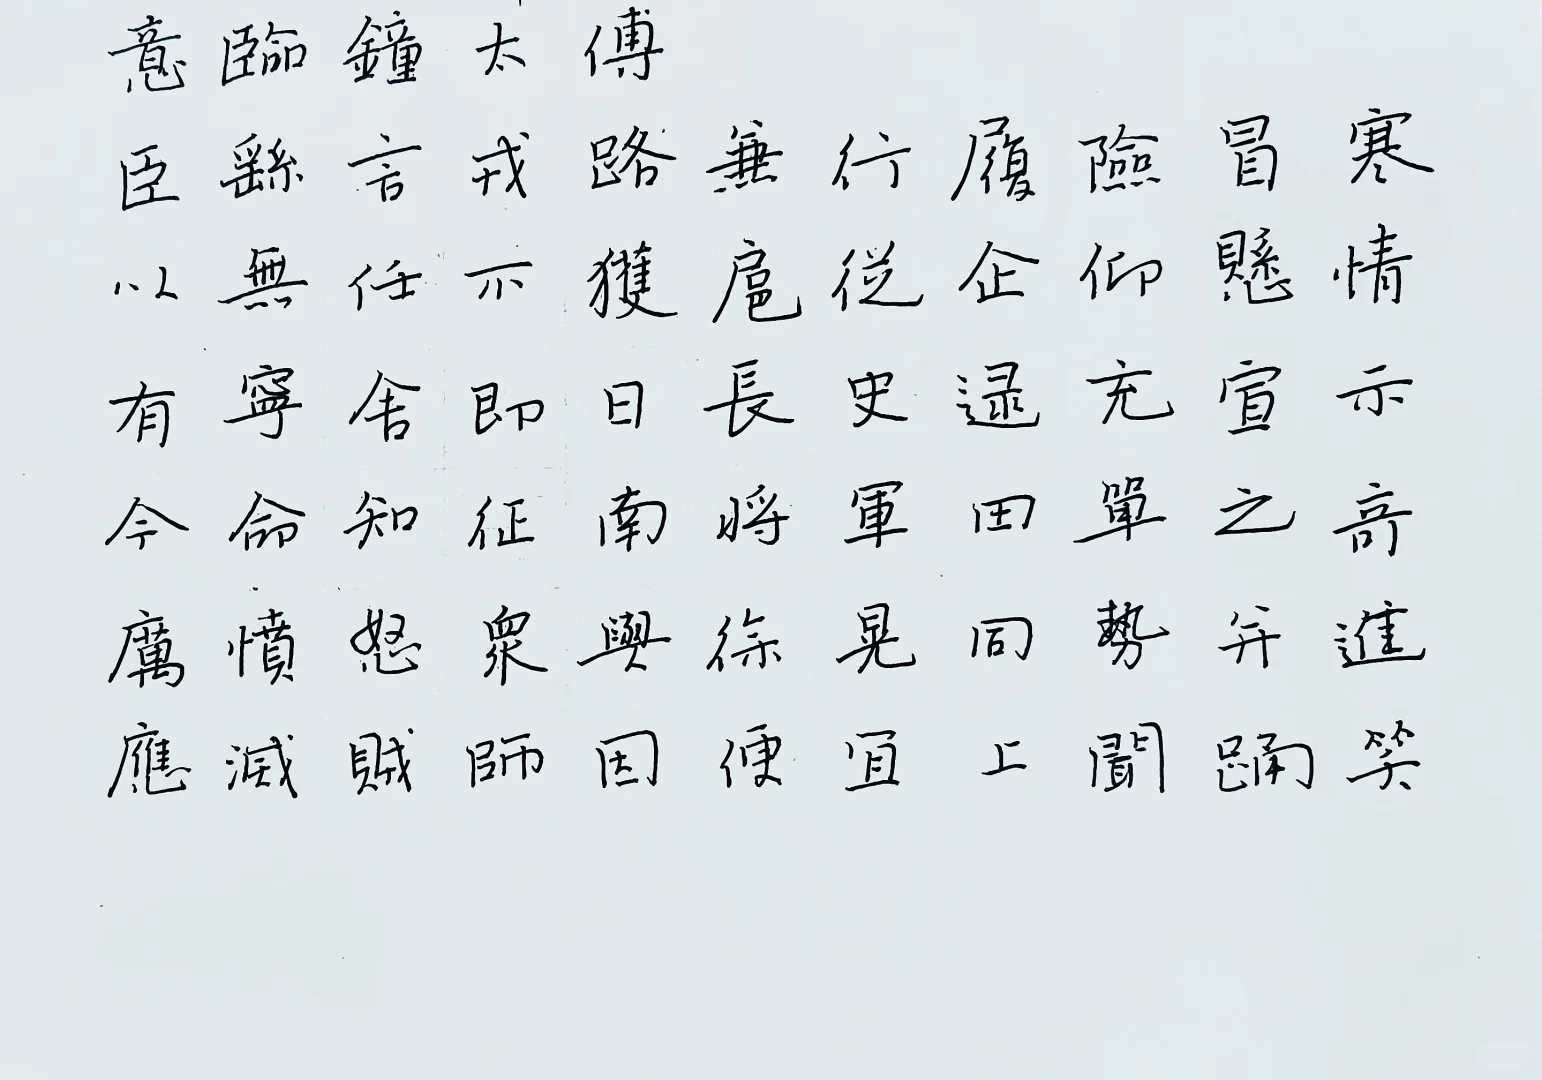 意臨鐘太傅
臣繇言戎路兼行履險冒寒
以無任不獲扈從企仰懸情
有寧舍即日長史逯充宣示
今命知征南將軍田單之奇
厲憤怒衆與徐晃同勢并進
應滅賊師因便宜上聞踊笑